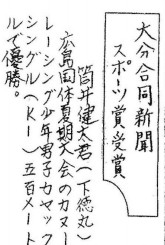 大分合同新聞
スポーツ賞受賞
筒井健太君(下徳丸)
広島国体夏期大会のカヌー
レーシング少年男子カヤック
シングル(K1)五百メート
ルで優勝。